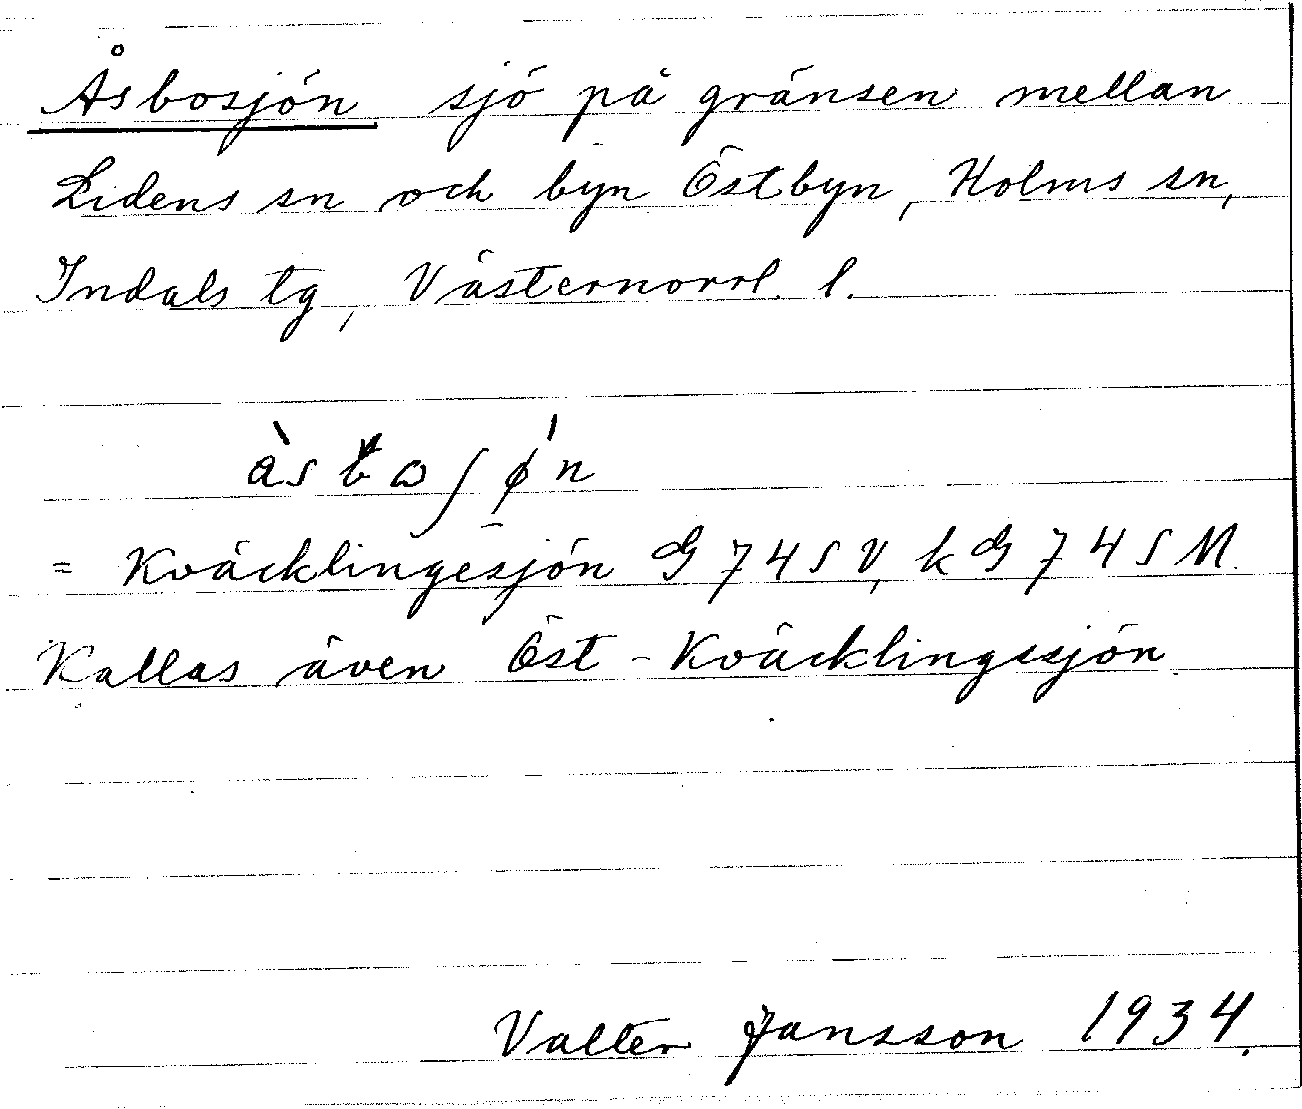 Åsbosjön sjö på gränsen mellan
Lidens sn och byn Östbyn, Holms sn,
Indals tg, Västernorrl. l.
= Kväcklingesjön G 74 SV, k G 74 S M.
Kallas även Öst-Kväcklingesjön.
Valter Jansson 1934.